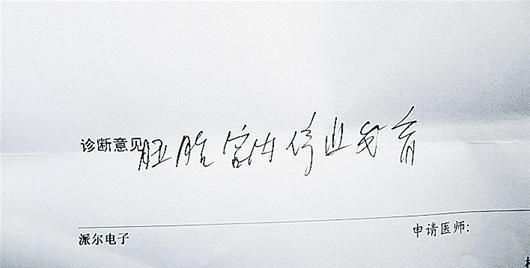 诊断意见 胚胎宫内停止发育
派尔电子 申请医师: